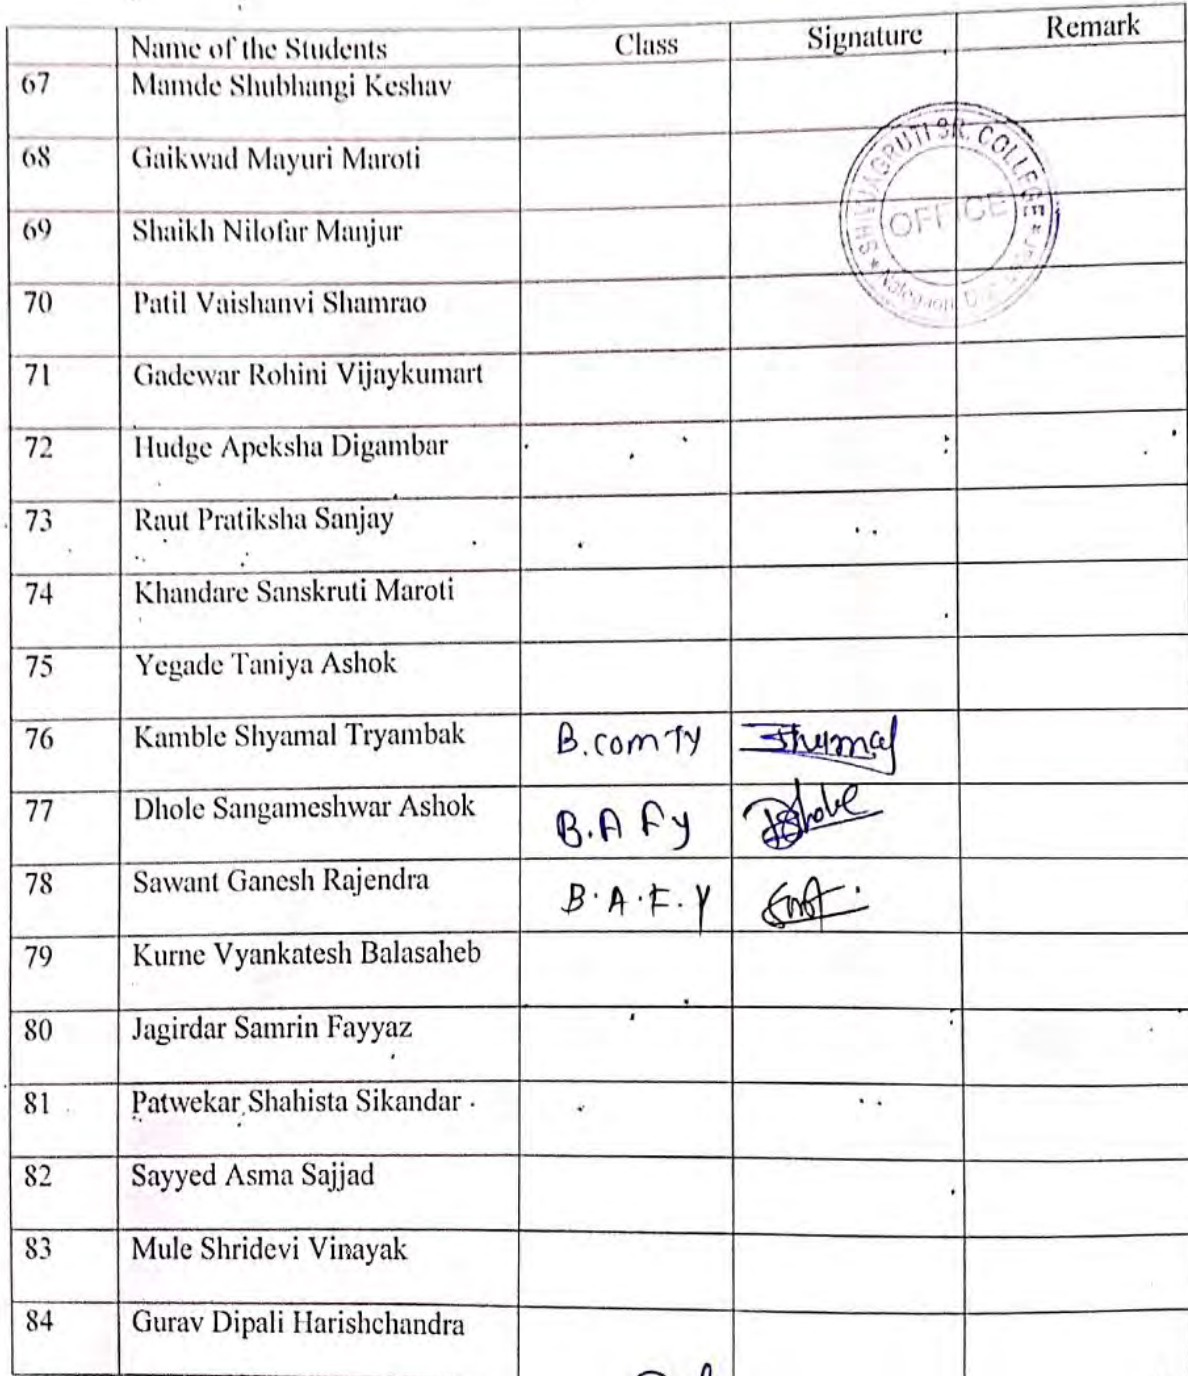 Name of the Students Class Signature Remark
67 Mamde Shubhangi Keshav
68 Gaikwad Mayuri Maroti
69 Shaikh Nilofar Manjur
70 Patil Vaishanvi Shamrao
71 Gadewar Rohini Vijaykumart
72 Hudge Apeksha Digambar
73 Raut Pratiksha Sanjay
74 Khandare Sanskruti Maroti
75 Yegade Taniya Ashok
76 Kamble Shyamal Tryambak B.com TY
77 Dhole Sangameshwar Ashok B.A Fy Dhole
78 Sawant Ganesh Rajendra B.A.F.Y
79 Kurne Vyankatesh Balasaheb
80 Jagirdar Samrin Fayyaz
81 Patwekar Shahista Sikandar
82 Sayyed Asma Sajjad
83 Mule Shridevi Vinayak
84 Gurav Dipali Harishchandra
SR. COLLEGE
OFFICE